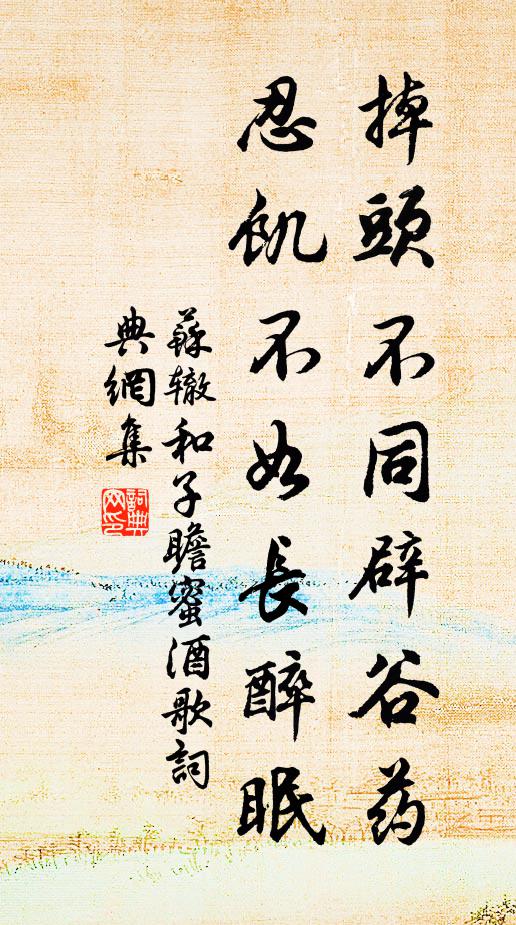 掉頭不同辟谷药
忍飢不如長醉眠
蘇辙和子瞻蜜酒歌詞
典網集
詞典
网印